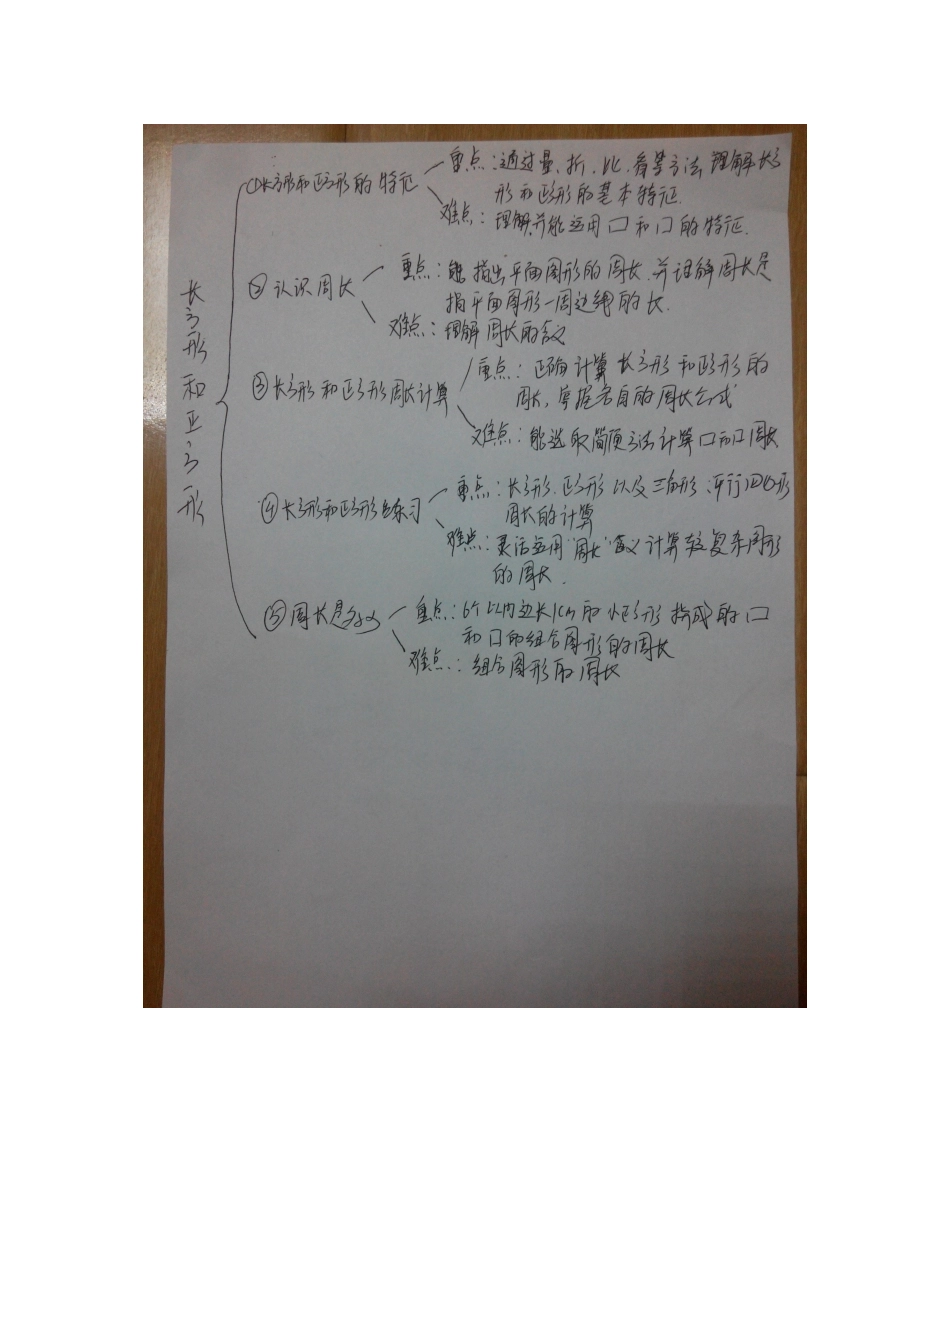 长方形和正方形
①长方形和正方形的特征
重点：通过量、折、比、看等方法理解长方
形和正方形的基本特征.
难点：理解并能运用口和口的特征.
②认识周长
重点：能指出平面图形的周长.并理解周长是
指平面图形一周边线的长.
难点：理解周长的含义
③长方形和正方形周长计算
重点：正确计算长方形和正方形的
周长，掌握各自的周长公式
难点：能选取简便方法计算口和口周长
④长方形和正方形练习
重点：长方形.正方形以及三角形、平行四边形
周长的计算
难点：灵活运用"周长"含义计算较复杂图形
的周长.
⑤周长是多少
重点：6个以内边长1cm的小正方形拼成的口
和口的组合图形的周长
难点：组合图形的周长